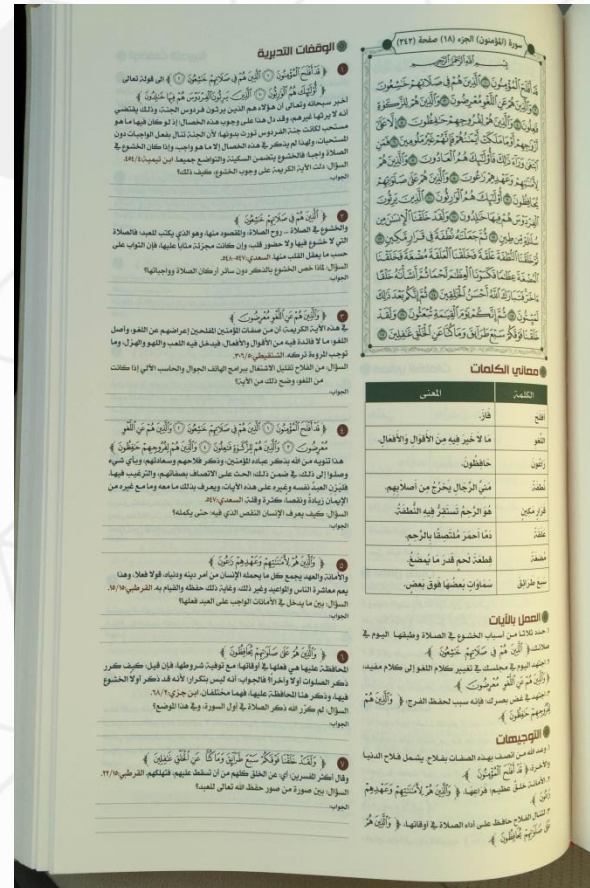 سورة (المؤمنون) الجزء (١٨) صفحة (٣٤٢)
بِسْمِ اللَّهِ الرَّحْمَٰنِ الرَّحِيمِ
قَدْ أَفْلَحَ الْمُؤْمِنُونَ ① الَّذِينَ هُمْ فِي صَلَاتِهِمْ خَاشِعُونَ
② وَالَّذِينَ هُمْ عَنِ اللَّغْوِ مُعْرِضُونَ ③ وَالَّذِينَ هُمْ لِلزَّكَاةِ
فَاعِلُونَ ④ وَالَّذِينَ هُمْ لِفُرُوجِهِمْ حَافِظُونَ ⑤ إِلَّا عَلَىٰ
أَزْوَاجِهِمْ أَوْ مَا مَلَكَتْ أَيْمَانُهُمْ فَإِنَّهُمْ غَيْرُ مَلُومِينَ ⑥ فَمَنِ
ابْتَغَىٰ وَرَاءَ ذَٰلِكَ فَأُولَٰئِكَ هُمُ الْعَادُونَ ⑦ وَالَّذِينَ هُمْ
لِأَمَانَاتِهِمْ وَعَهْدِهِمْ رَاعُونَ ⑧ وَالَّذِينَ هُمْ عَلَىٰ صَلَوَاتِهِمْ
يُحَافِظُونَ ⑨ أُولَٰئِكَ هُمُ الْوَارِثُونَ ⑩ الَّذِينَ يَرِثُونَ
الْفِرْدَوْسَ هُمْ فِيهَا خَالِدُونَ ⑪ وَلَقَدْ خَلَقْنَا الْإِنْسَانَ مِنْ
سُلَالَةٍ مِنْ طِينٍ ⑫ ثُمَّ جَعَلْنَاهُ نُطْفَةً فِي قَرَارٍ مَكِينٍ ⑬
ثُمَّ خَلَقْنَا النُّطْفَةَ عَلَقَةً فَخَلَقْنَا الْعَلَقَةَ مُضْغَةً فَخَلَقْنَا
الْمُضْغَةَ عِظَامًا فَكَسَوْنَا الْعِظَامَ لَحْمًا ثُمَّ أَنْشَأْنَاهُ خَلْقًا
آخَرَ فَتَبَارَكَ اللَّهُ أَحْسَنُ الْخَالِقِينَ ⑭ ثُمَّ إِنَّكُمْ بَعْدَ ذَٰلِكَ
لَمَيِّتُونَ ⑮ ثُمَّ إِنَّكُمْ يَوْمَ الْقِيَامَةِ تُبْعَثُونَ ⑯ وَلَقَدْ
خَلَقْنَا فَوْقَكُمْ سَبْعَ طَرَائِقَ وَمَا كُنَّا عَنِ الْخَلْقِ غَافِلِينَ ⑰
معاني الكلمات
الكلمة المعنى
أفلح فَازَ.
اللغو مَا لَا خَيرَ فِيهِ مِنَ الأَقوَالِ وَالأَفعَالِ.
رَاعُونَ حَافِظُونَ.
نُطفَةً مَنِيَّ الرِّجَالِ يَخْرُجُ مِن أَصلَابِهِم.
قرار مكين هُوَ الرَّحِمُ تَستَقِرُّ فِيهِ النُّطفَةُ.
عَلَقَةً دَمًا أَحمَرَ مُلتَصِقًا بِالرَّحِمِ.
مُضغَةً قِطعَةَ لَحمٍ قَدرَ مَا يُمضَغُ.
سبع طرائق سَمَاوَاتٍ بَعضُهَا فَوقَ بَعضٍ.
العمل بالآيات
١. حدد ثلاثا من أسباب الخشوع في الصلاة وطبقها اليوم في
صلاتك، ﴿ الَّذِينَ هُمْ فِي صَلَاتِهِمْ خَاشِعُونَ ﴾.
٢. اجتهد اليوم في مجلسك في تغيير كلام اللغو إلى كلام مفيد،
﴿ وَالَّذِينَ هُمْ عَنِ اللَّغْوِ مُعْرِضُونَ ﴾.
٣. اجتهد في غض بصرك؛ فإنه سبب لحفظ الفرج، ﴿ وَالَّذِينَ هُمْ
لِفُرُوجِهِمْ حَافِظُونَ ﴾.
التوجيهات
١. وعد الله من اتصف بهذه الصفات بفلاح يشمل فلاح الدنيا
والآخرة، ﴿ قَدْ أَفْلَحَ الْمُؤْمِنُونَ ﴾.
٢. الأمانة خلق عظيم؛ فراعها، ﴿ وَالَّذِينَ هُمْ لِأَمَانَاتِهِمْ وَعَهْدِهِمْ
رَاعُونَ ﴾.
٣. لتنال الفلاح حافظ على أداء الصلاة في أوقاتها، ﴿ وَالَّذِينَ هُمْ
عَلَىٰ صَلَوَاتِهِمْ يُحَافِظُونَ ﴾.
الوقفات التدبرية
١ ﴿ قَدْ أَفْلَحَ الْمُؤْمِنُونَ ① الَّذِينَ هُمْ فِي صَلَاتِهِمْ خَاشِعُونَ ② ﴾ الى قوله تعالى
﴿ أُولَٰئِكَ هُمُ الْوَارِثُونَ ⑩ الَّذِينَ يَرِثُونَ الْفِرْدَوْسَ هُمْ فِيهَا خَالِدُونَ ﴾
أخبر سبحانه وتعالى أن هؤلاء هم الذين يرثون فردوس الجنة، وذلك يقتضي
أنه لا يرثها غيرهم، وقد دل هذا على وجوب هذه الخصال؛ إذ لو كان فيها ما هو
مستحب لكانت جنة الفردوس تورث بدونها؛ لأن الجنة تنال بفعل الواجبات دون
المستحبات، ولهذا لم يذكر في هذه الخصال إلا ما هو واجب، وإذا كان الخشوع في
الصلاة واجبا؛ فالخشوع يتضمن السكينة والتواضع جميعا. ابن تيمية: ٤/٥٩٤.
السؤال: دلت الآية الكريمة على وجوب الخشوع، كيف ذلك؟
الجواب:
٢ ﴿ الَّذِينَ هُمْ فِي صَلَاتِهِمْ خَاشِعُونَ ﴾
والخشوع في الصلاة .. روح الصلاة، والمقصود منها، وهو الذي يكتب للعبد؛ فالصلاة
التي لا خشوع فيها ولا حضور قلب، وإن كانت مجزئة مثابا عليها، فإن الثواب على
حسب ما يعقل القلب منها. السعدي: ٥٤٧-٥٤٨.
السؤال: لماذا خص الخشوع بالذكر دون سائر أركان الصلاة وواجباتها؟
الجواب:
٣ ﴿ وَالَّذِينَ هُمْ عَنِ اللَّغْوِ مُعْرِضُونَ ﴾
في هذه الآية الكريمة: أن من صفات المؤمنين المفلحين إعراضهم عن اللغو، وأصل
اللغو: ما لا فائدة فيه من الأقوال والأفعال، فيدخل فيه اللعب واللهو والهزل، وما
توجب المروءة تركه. الشنقيطي: ٥/٣٠٦.
السؤال: من الفلاح تقليل الاشتغال ببرامج الهاتف الجوال والحاسب الآلي إذا كانت
من اللغو، وضح ذلك من الآية؟
الجواب:
٤ ﴿ قَدْ أَفْلَحَ الْمُؤْمِنُونَ ① الَّذِينَ هُمْ فِي صَلَاتِهِمْ خَاشِعُونَ ② وَالَّذِينَ هُمْ عَنِ اللَّغْوِ
مُعْرِضُونَ ③ وَالَّذِينَ هُمْ لِلزَّكَاةِ فَاعِلُونَ ④ وَالَّذِينَ هُمْ لِفُرُوجِهِمْ حَافِظُونَ ﴾
هذا تنويه من الله بذكر عباده المؤمنين، وذكر فلاحهم وسعادتهم، وبأي شيء
وصلوا إلى ذلك، في ضمن ذلك: الحث على الاتصاف بصفاتهم، والترغيب فيها،
فليزن العبد نفسه وغيره على هذه الآيات، ويعرف بذلك ما معه وما مع غيره من
الإيمان زيادة ونقصا، كثرة وقلة. السعدي: ٥٤٧.
السؤال: كيف يعرف الإنسان النقص الذي فيه؛ حتى يكمله؟
الجواب:
٥ ﴿ وَالَّذِينَ هُمْ لِأَمَانَاتِهِمْ وَعَهْدِهِمْ رَاعُونَ ﴾
والأمانة والعهد يجمع كل ما يحمله الإنسان من أمر دينه ودنياه، قولا فعلا، وهذا
يعم معاشرة الناس والمواعيد وغير ذلك، وغاية ذلك حفظه والقيام به. القرطبي: ١٥/١٥.
السؤال: بين ما يدخل في الأمانات الواجب على العبد فعلها؟
الجواب:
٦ ﴿ وَالَّذِينَ هُمْ عَلَىٰ صَلَوَاتِهِمْ يُحَافِظُونَ ﴾
المحافظة عليها هي فعلها في أوقاتها؛ مع توفية شروطها، فإن قيل: كيف كرر
ذكر الصلوات أولا وآخرا؟ فالجواب: أنه ليس بتكرار؛ لأنه قد ذكر أولا الخشوع
فيها، وذكر هنا المحافظة عليها، فهما مختلفان. ابن جزي: ٢/٦٨.
السؤال: لم كرّر الله ذكر الصلاة في أول السورة، وفي هذا الموضع؟
الجواب:
٧ ﴿ وَلَقَدْ خَلَقْنَا فَوْقَكُمْ سَبْعَ طَرَائِقَ وَمَا كُنَّا عَنِ الْخَلْقِ غَافِلِينَ ﴾
وقال أكثر المفسرين: أي: عن الخلق كلهم من أن تسقط عليهم، فتهلكهم. القرطبي: ١٥/٢٢.
السؤال: بين صورة من صور حفظ الله تعالى للعبد؟
الجواب: